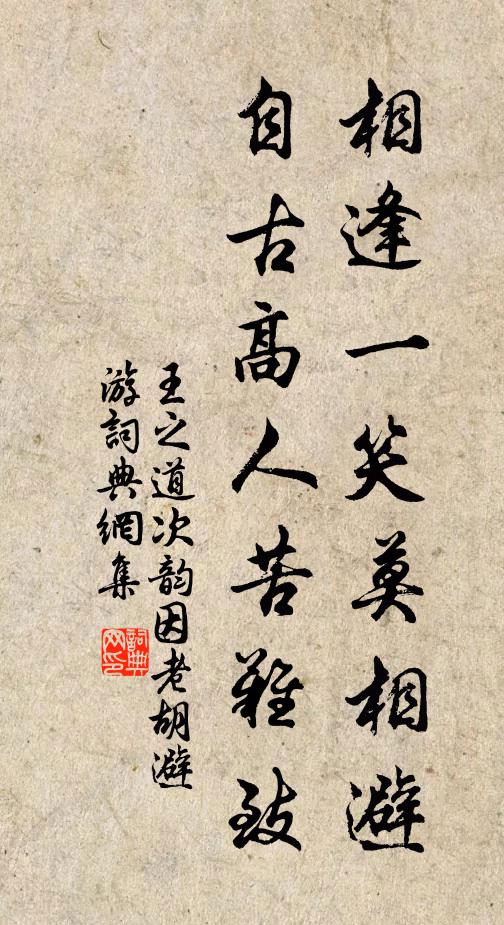 相逢一笑莫相避
自古高人苦難致
王之道次韵因老胡避
游詞典網集
詞典
网印